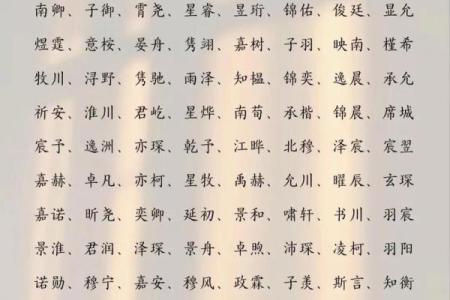 南卿、子御、霄尧、星睿、昱珩、锦佑、俊廷、显允
煜霆、意桉、晏舟、隽翊、嘉树、子羽、映南、槿希
牧川、浔野、隽驰、雨泽、知韫、锦奕、逸晨、承允
祈安、淮川、君屹、星烨、南荀、承楷、锦晨、席城
宸子、逸洲、亦琛、乾子、江晔、北穆、泽宸、宸翌
嘉赫、卓凡、亦柯、星牧、禹赫、允川、曜辰、玄琛
嘉诺、昕尧、奕卿、延初、景和、啸轩、书川、羽宸
景淮、君润、泽琛、景舟、卓煦、沛琛、凌柯、羽阳
诺勋、穆宁、嘉安、穆风、政霖、子羡、斯言、知衡